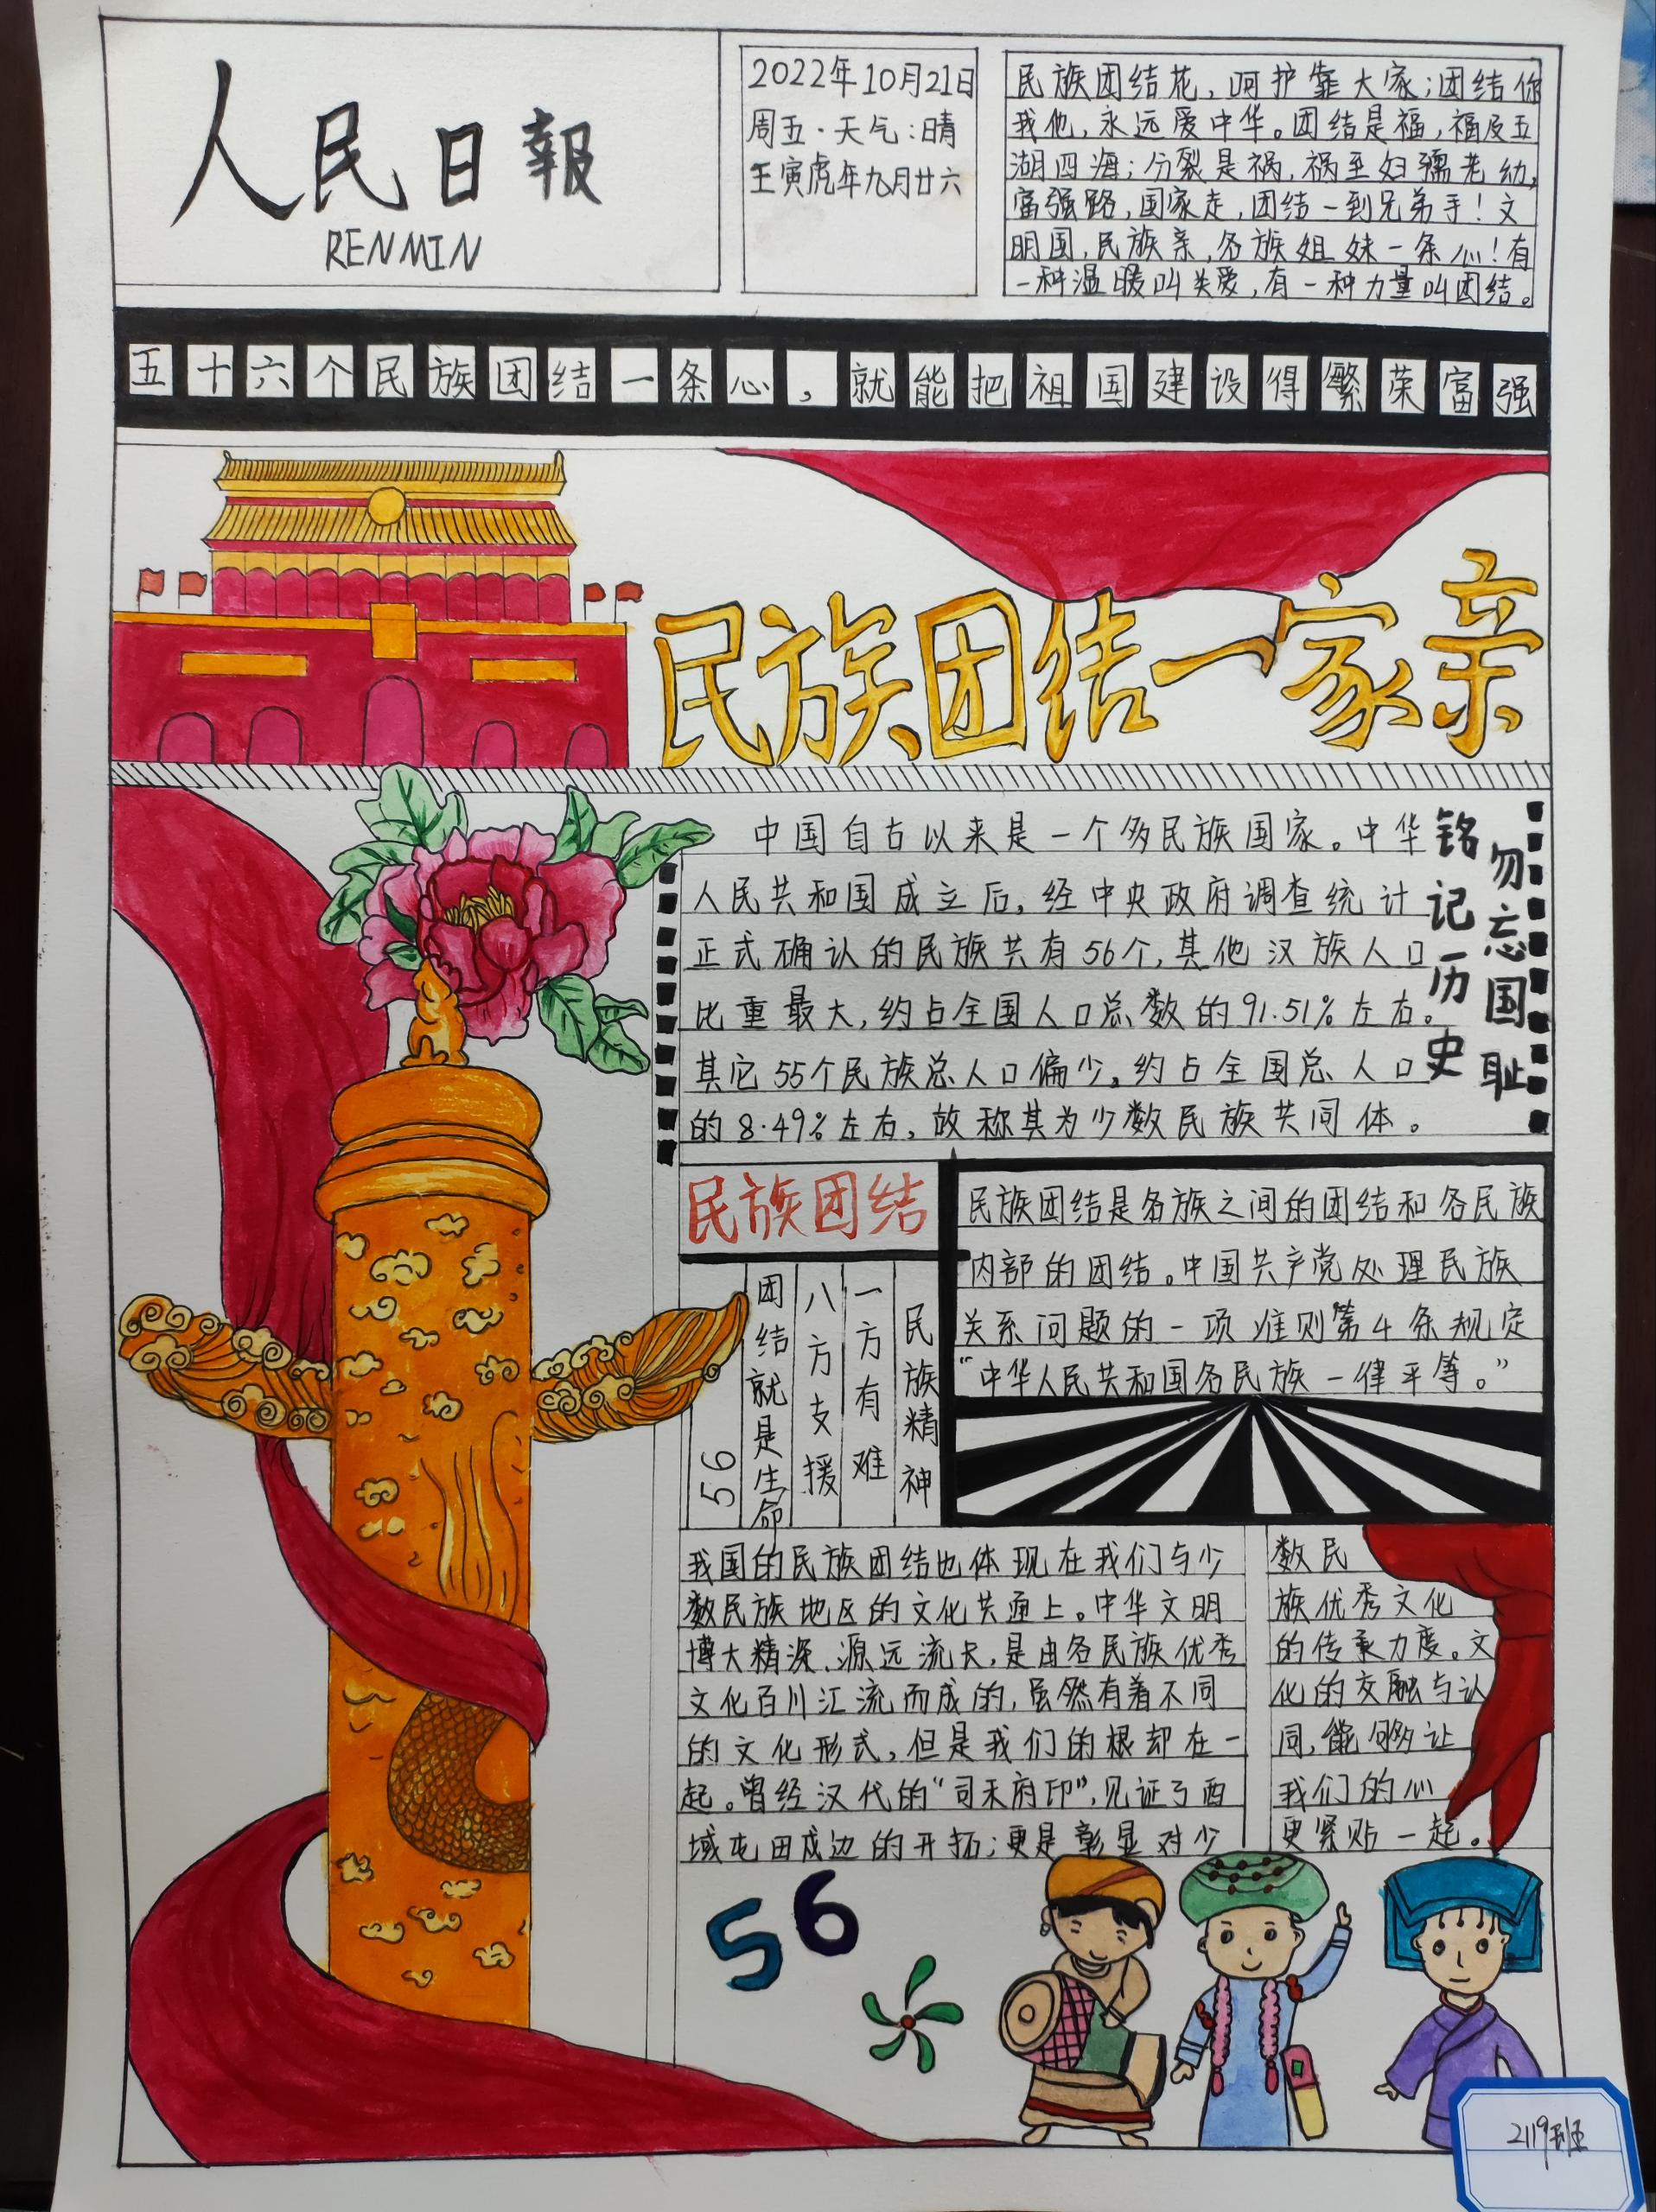 人民日報
RENMIN
2022年10月21日
周五·天气:晴
壬寅虎年九月廿六
民族团结花,呵护靠大家;团结你
我他,永远爱中华。团结是福,福及五
湖四海;分裂是祸,祸至妇孺老幼,
富强路,国家走,团结一到兄弟手!文
明国,民族亲,各族姐妹一条心!有
一种温暖叫关爱,有一种力量叫团结。
五十六个民族团结一条心,就能把祖国建设得繁荣富强
民族团结一家亲
中国自古以来是一个多民族国家。中华
人民共和国成立后,经中央政府调查统计
正式确认的民族共有56个,其他汉族人口
比重最大,约占全国人口总数的91.51%左右。
其它55个民族总人口偏少。约占全国总人口
的8.49%左右,故称其为少数民族共同体。
铭记历史
勿忘国耻
民族团结
民族精神
一方有难
八方支援
团结就是生命
56
民族团结是各族之间的团结和各民族
内部的团结。中国共产党处理民族
关系问题的一项准则第4条规定
“中华人民共和国各民族一律平等。”
我国的民族团结也体现在我们与少
数民族地区的文化共通上。中华文明
博大精深、源远流长,是由各民族优秀
文化百川汇流而成的,虽然有着不同
的文化形式,但是我们的根却在一
起。曾经汉代的“司禾府印”,见证了西
域屯田戍边的开拓;更是彰显对少
数民
族优秀文化
的传承力度。文
化的交融与认
同,能够让
我们的心
更紧贴一起。
56
2119班